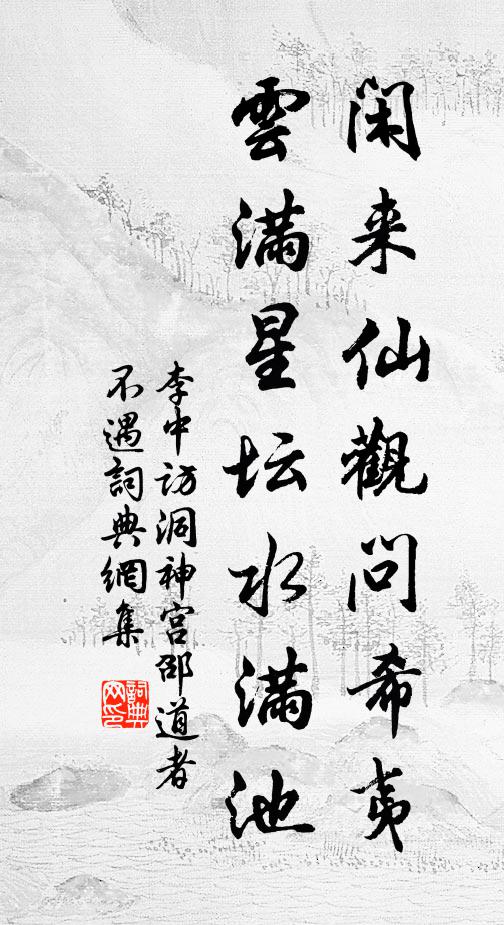 闲来仙觀问希夷
雲满星坛水满池
李中访洞神宫邵道者
不遇詞典網集
詞典
网印